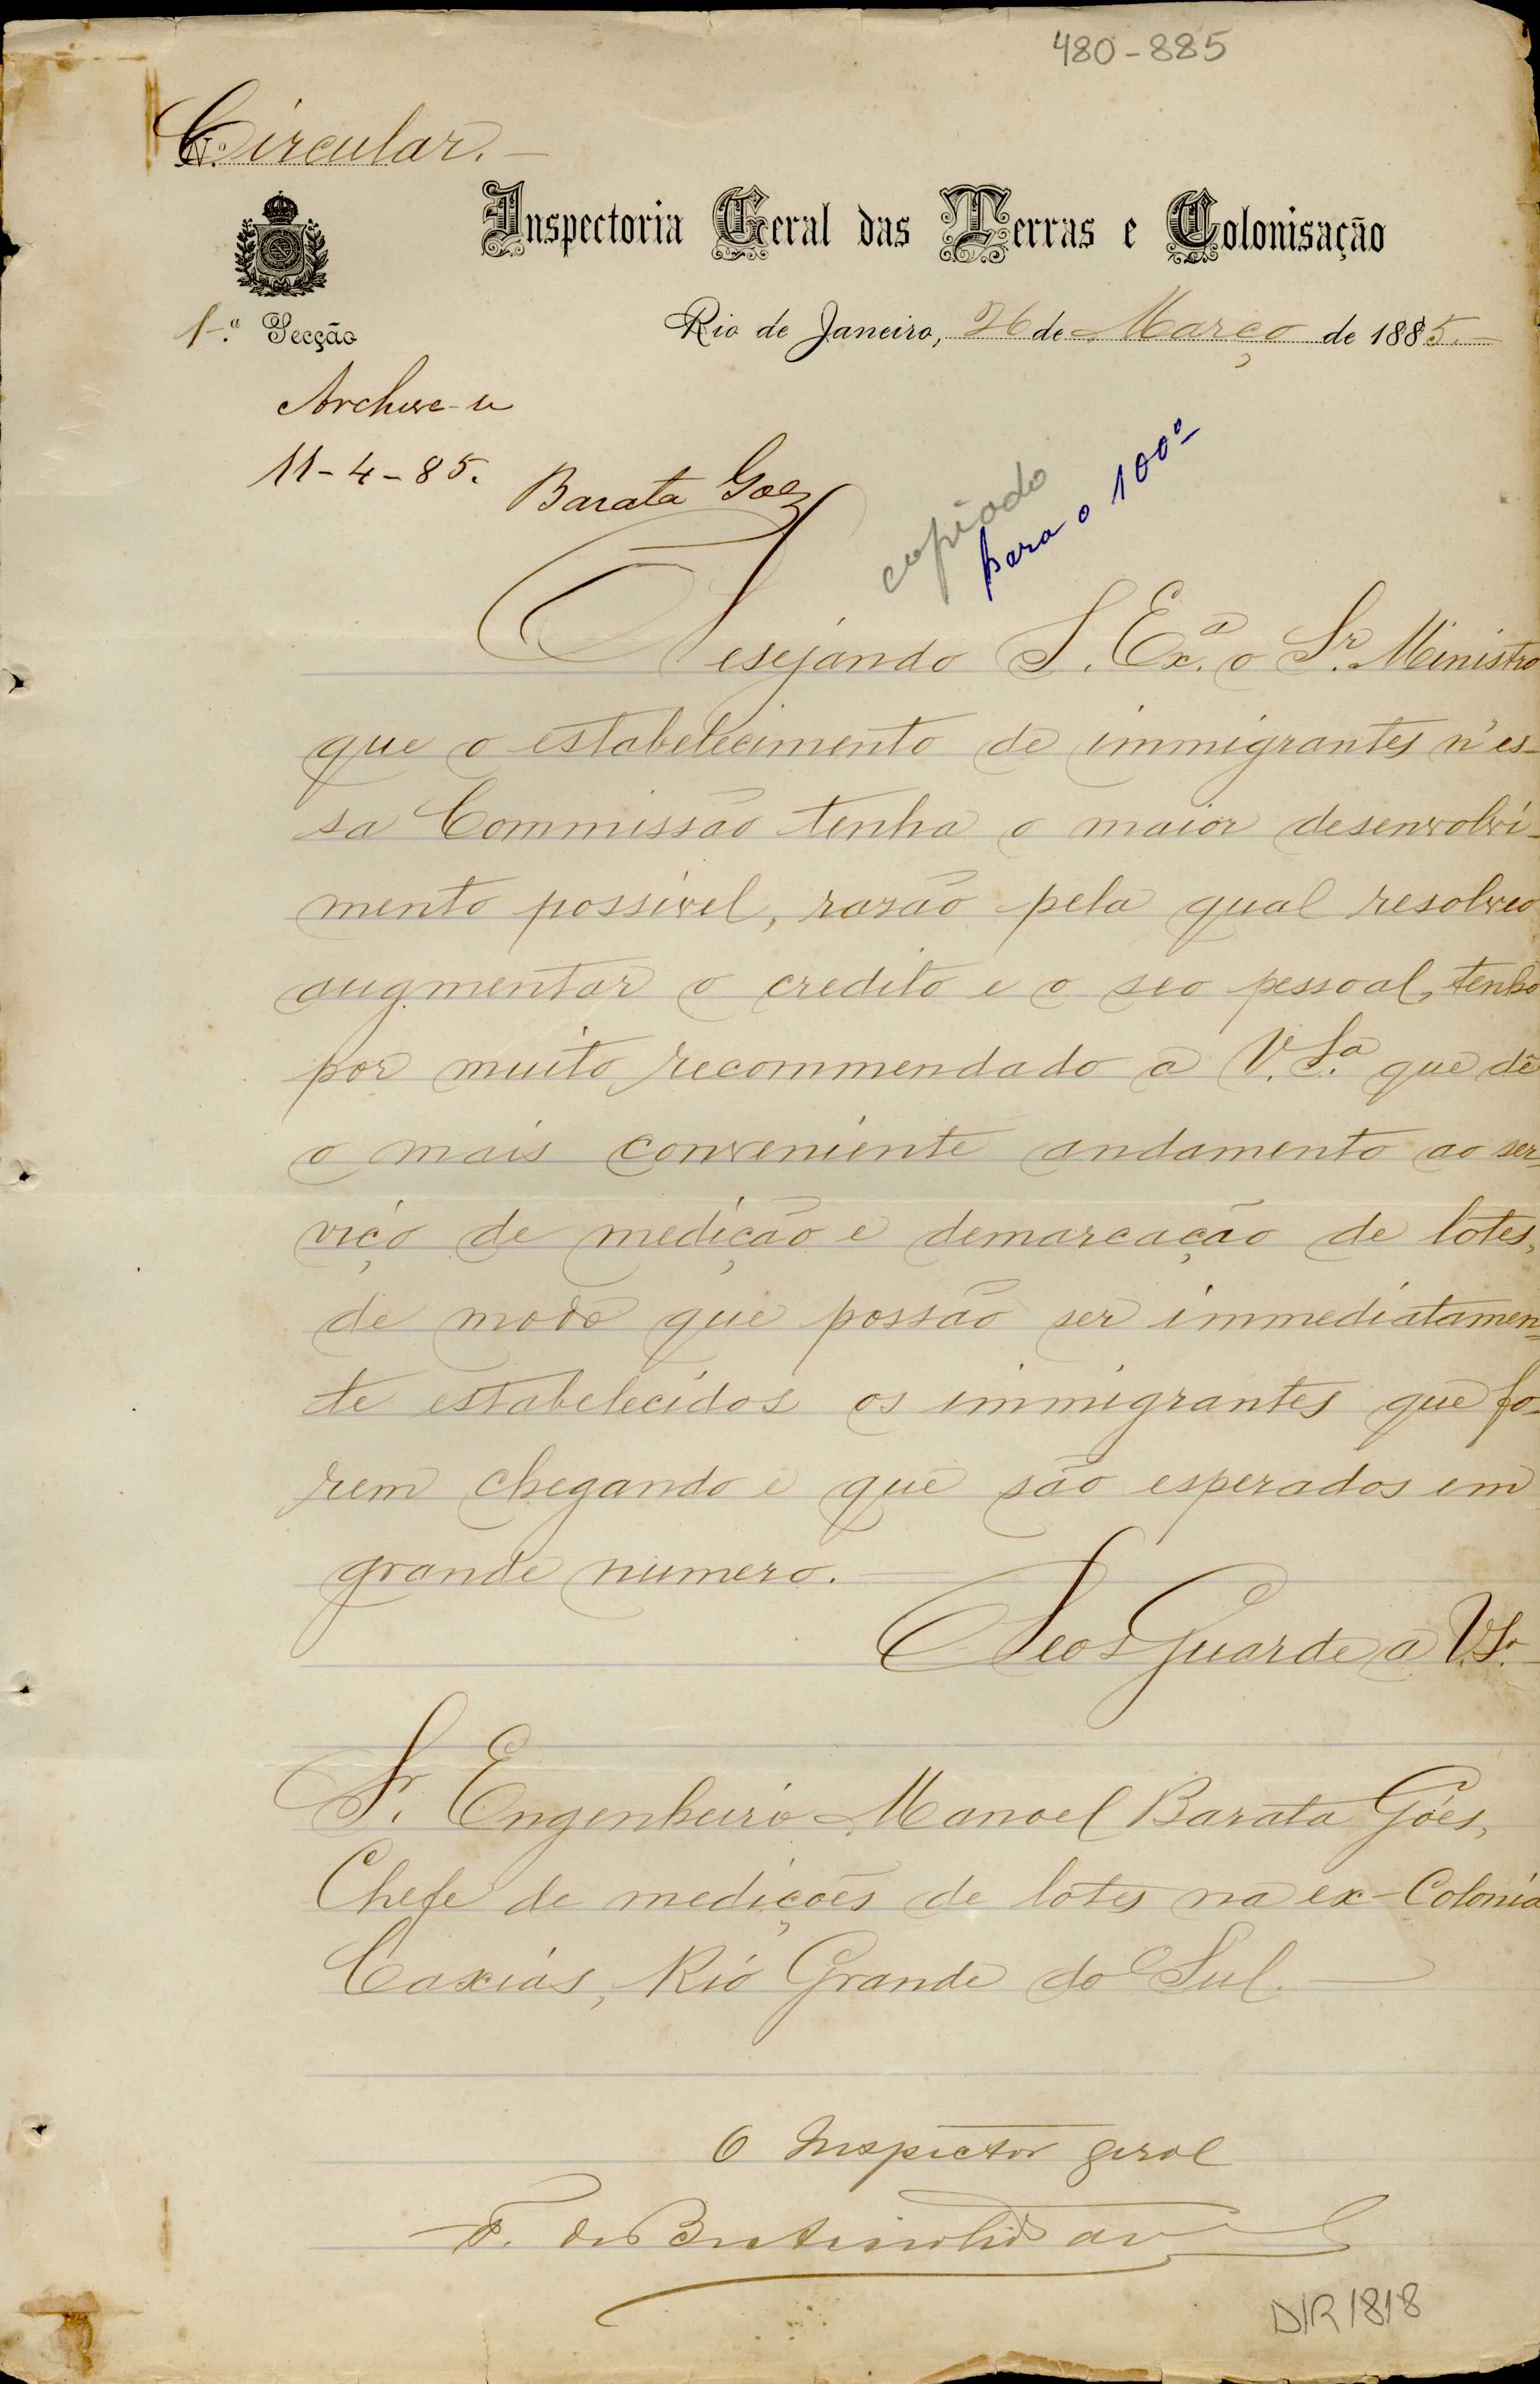 480-885
Circular.
Nº
Inspectoria Geral das Terras e Colonisação
1ª Secção
Rio de Janeiro, 26 de Março de 1885.
Archive-se
11-4-85.
Barata Goes
copiado
para o 100º
Desejando S. Exª. o Sr. Ministro
que o estabelecimento de immigrantes n'es-
sa Commissão tenha o maior desenvolvi-
mento possivel, rasão pela qual resolveo
augmentar o credito e o seo pessoal, tenho
por muito recommendado a V. Sª. que dê
o mais conveniente andamento ao ser-
viço de medição e demarcação de lotes,
de modo que possão ser immediatamen-
te estabelecidos os immigrantes que fo-
rem chegando e que são esperados em
grande numero.
Deos Guarde a V. Sª.
Sr. Engenheiro Manoel Barata Góes,
Chefe de medições de lotes na ex-Colonia
Caxias, Rio Grande do Sul.
O Inspector geral
F. de
DIR1818